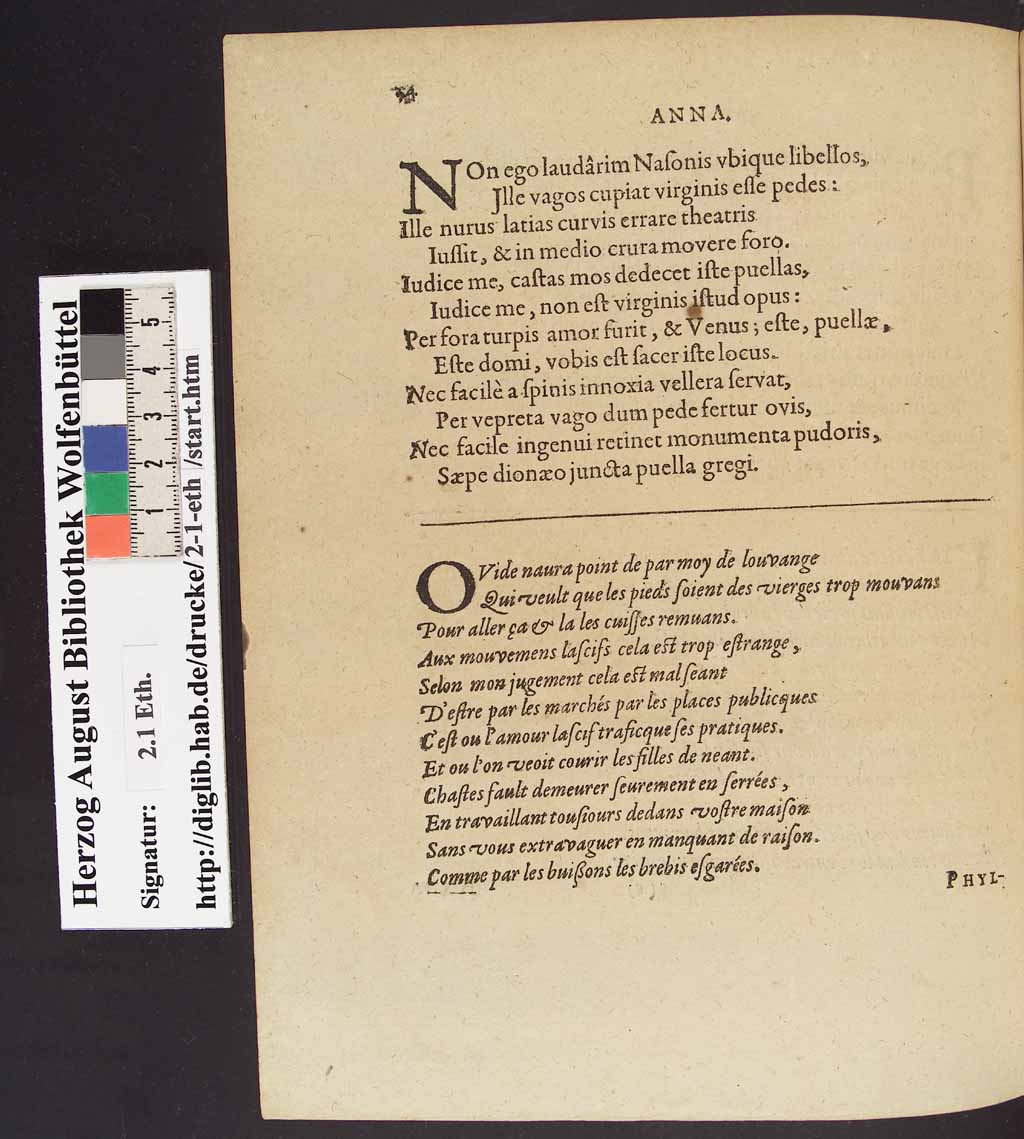 54
ANNA.
NOn ego laudârim Naſonis vbique libellos,
Jlle vagos cupiat virginis eſſe pedes:
Ille nurus latias curvis errare theatris
Iuſſit, & in medio crura movere foro.
Iudice me, caſtas mos dedecet iſte puellas,
Iudice me, non eſt virginis iſtud opus:
Per fora turpis amor furit, & Venus; eſte, puellæ,
Eſte domi, vobis eſt ſacer iſte locus.
Nec facilè a ſpinis innoxia vellera ſervat,
Per vepreta vago dum pede fertur ovis,
Nec facile ingenui retinet monumenta pudoris,
Sæpe dionæo juncta puella gregi.
OVide naura point de par moy de louvange
Qui veult que les pieds ſoient des vierges trop mouvans
Pour aller ça & la les cuiſſes remuans.
Aux mouvemens laſcifs cela eſt trop eſtrange,
Selon mon jugement cela eſt mal ſeant
D'eſtre par les marchés par les places publicques
C'eſt ou l'amour laſcif traficque ſes pratiques.
Et ou l'on veoit courir les filles de neant.
Chaſtes fault demeurer ſeurement en ſerrées,
En travaillant touſiours dedans voſtre maiſon
Sans vous extravaguer en manquant de raiſon.
Comme par les buißons les brebis eſgarées.
PHYL-
Herzog August Bibliothek Wolfenbüttel
Signatur: 2.1 Eth.
http://diglib.hab.de/drucke/2-1-eth /start.htm
1 2 3 4 5